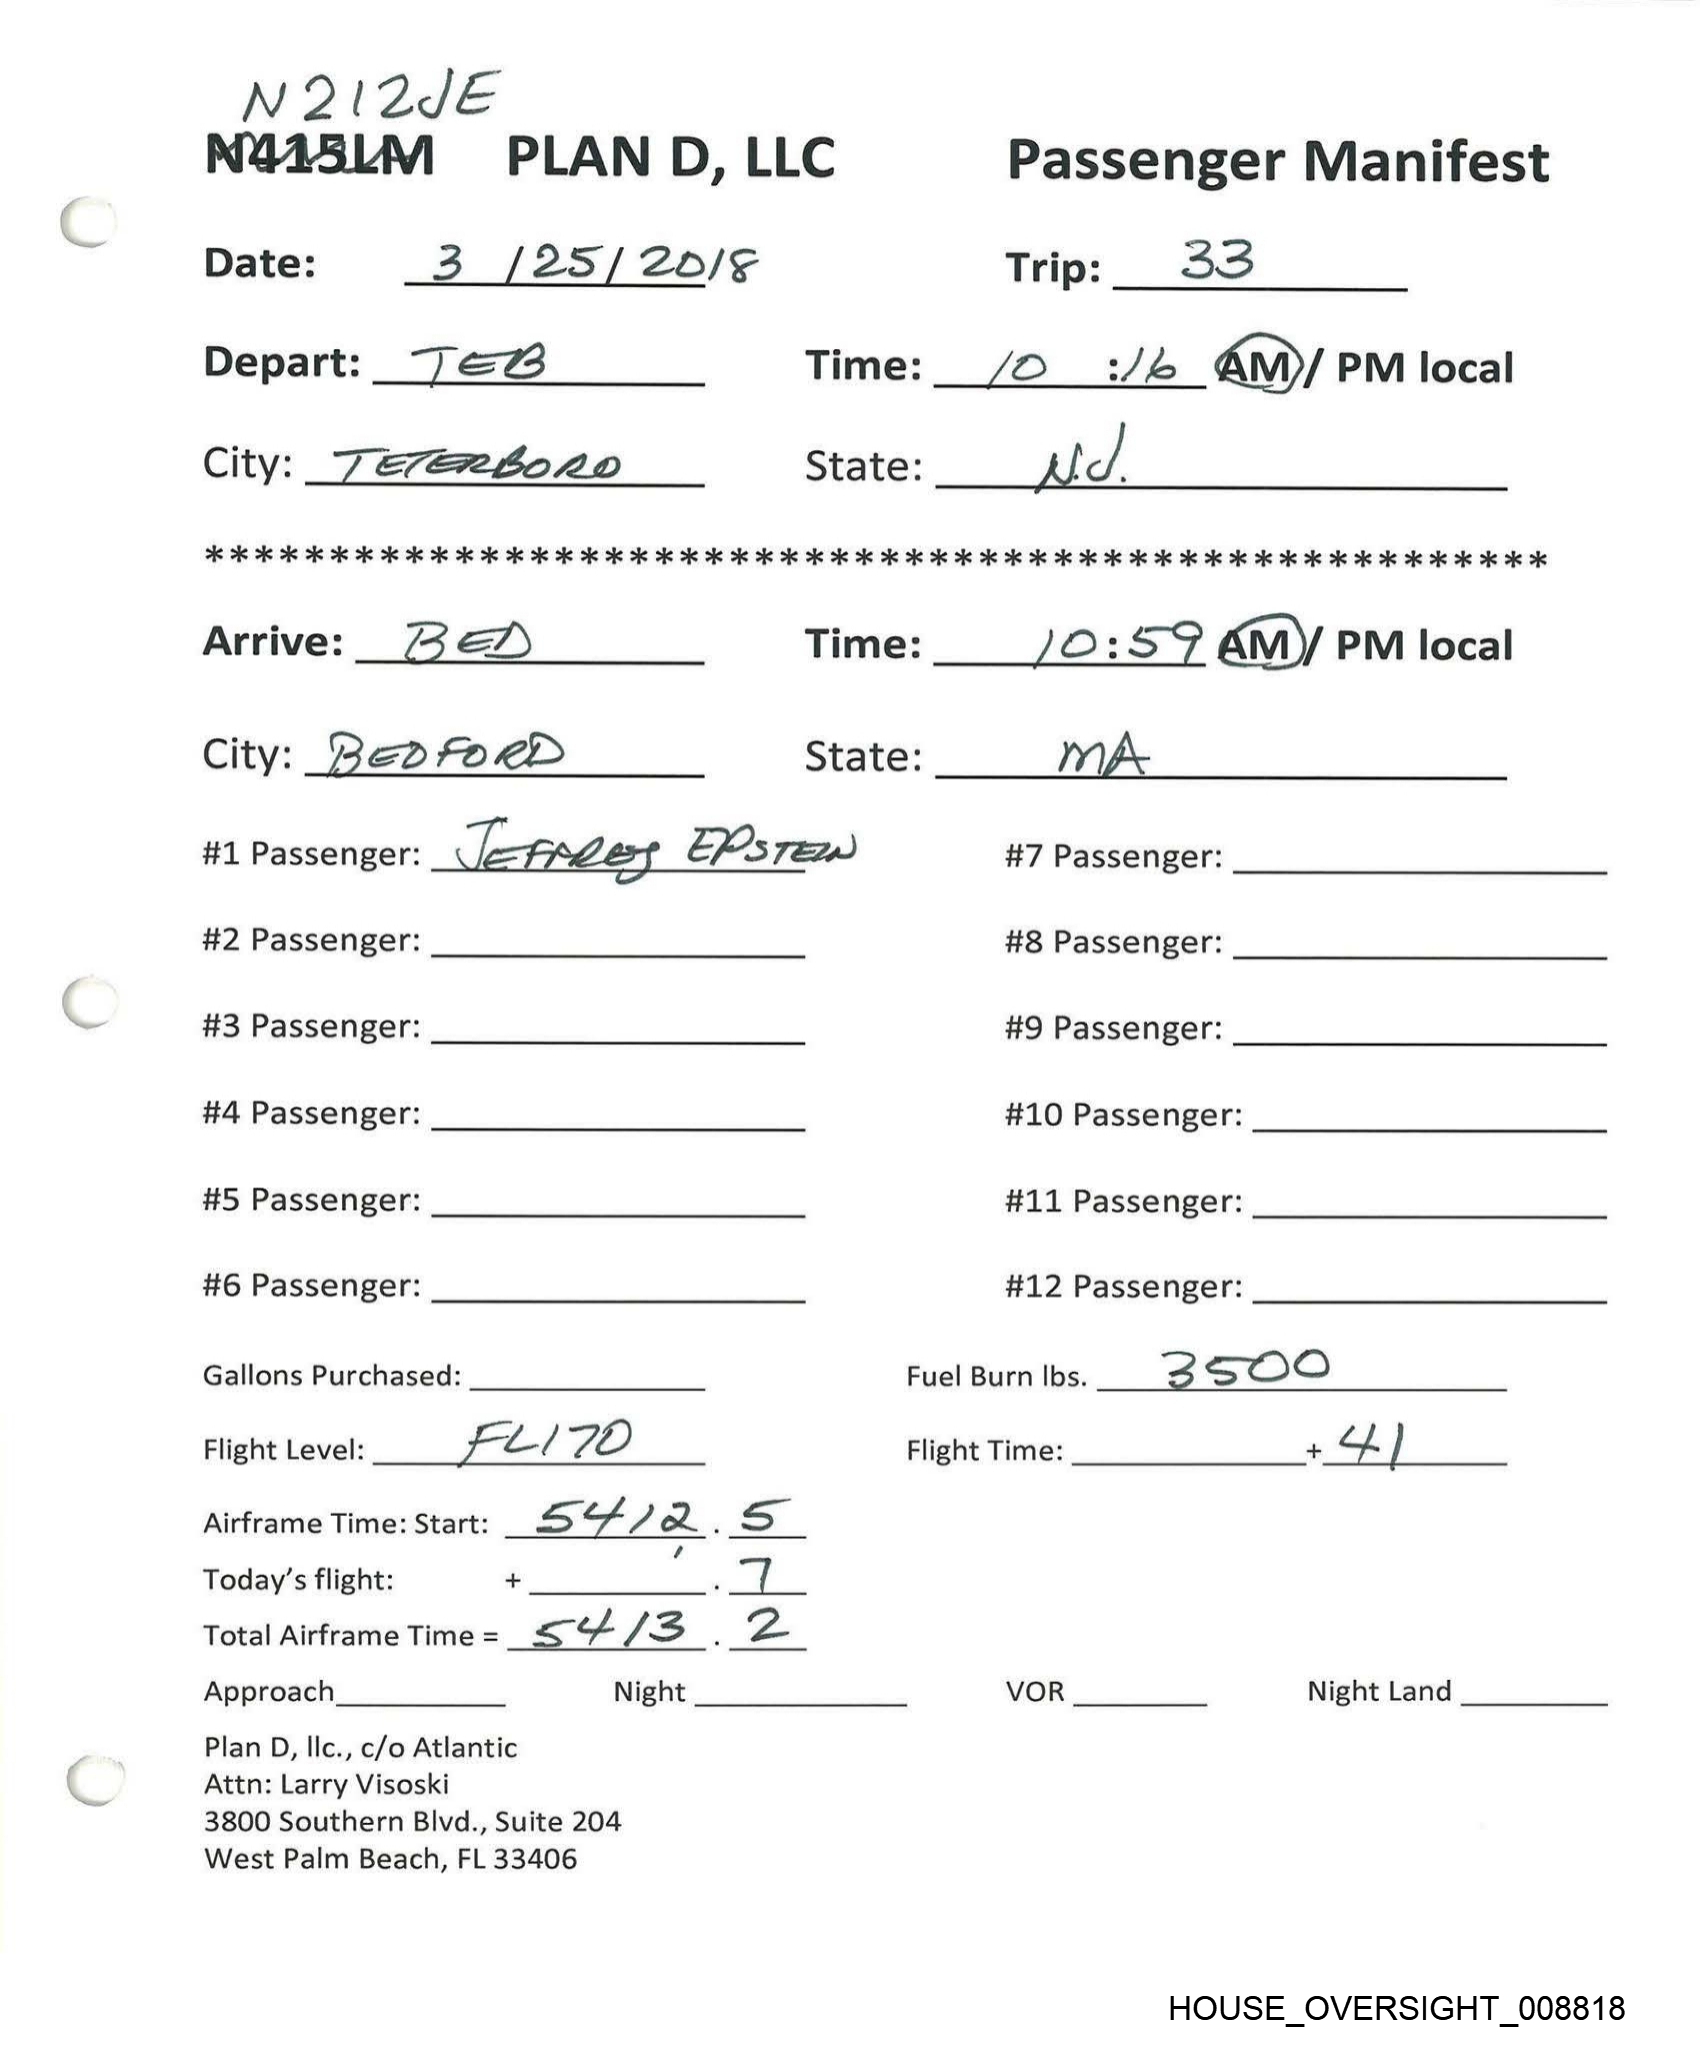 N212JE
N415LM PLAN D, LLC Passenger Manifest
Date: 3 /25/2018 Trip: 33
Depart: TEB Time: 10 :16 AM / PM local
City: TETERBORO State: N.J.
******************************************************
Arrive: BED Time: 10:59 AM / PM local
City: BEDFORD State: MA
#1 Passenger: JEFFREY EPSTEIN #7 Passenger:
#2 Passenger: #8 Passenger:
#3 Passenger: #9 Passenger:
#4 Passenger: #10 Passenger:
#5 Passenger: #11 Passenger:
#6 Passenger: #12 Passenger:
Gallons Purchased: Fuel Burn lbs. 3500
Flight Level: FL170 Flight Time: + 41
Airframe Time: Start: 5412 . 5
Today's flight: + . 7
Total Airframe Time = 5413 . 2
Approach Night VOR Night Land
Plan D, llc., c/o Atlantic
Attn: Larry Visoski
3800 Southern Blvd., Suite 204
West Palm Beach, FL 33406
HOUSE_OVERSIGHT_008818